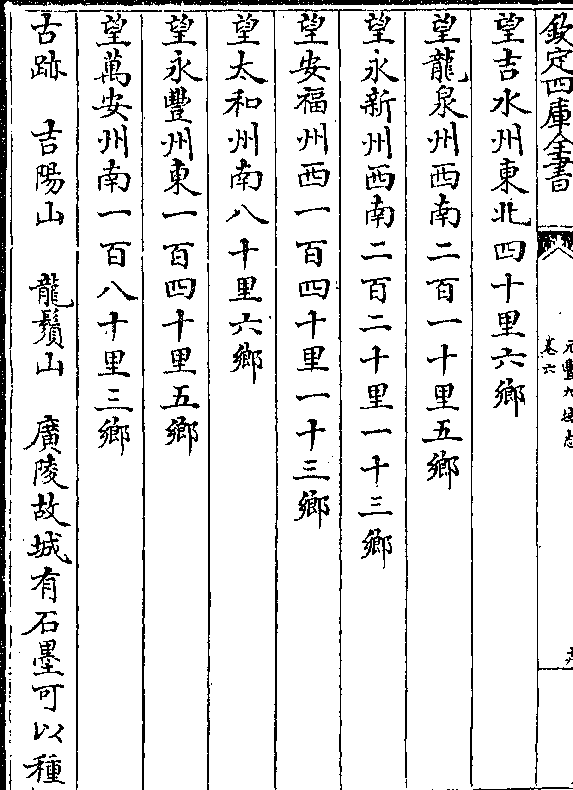 欽定四庫全書
元豐九域志
卷六
望吉水州東北四十里六鄉
望龍泉州西南二百一十里五鄉
望永新州西南二百二十里一十三鄉
望安福州西一百四十里一十三鄉
望太和州南八十里六鄉
望永豐州東一百四十里五鄉
望萬安州南一百八十里三鄉
古跡 吉陽山 龍鬚山 廣陵故城有石墨可以種